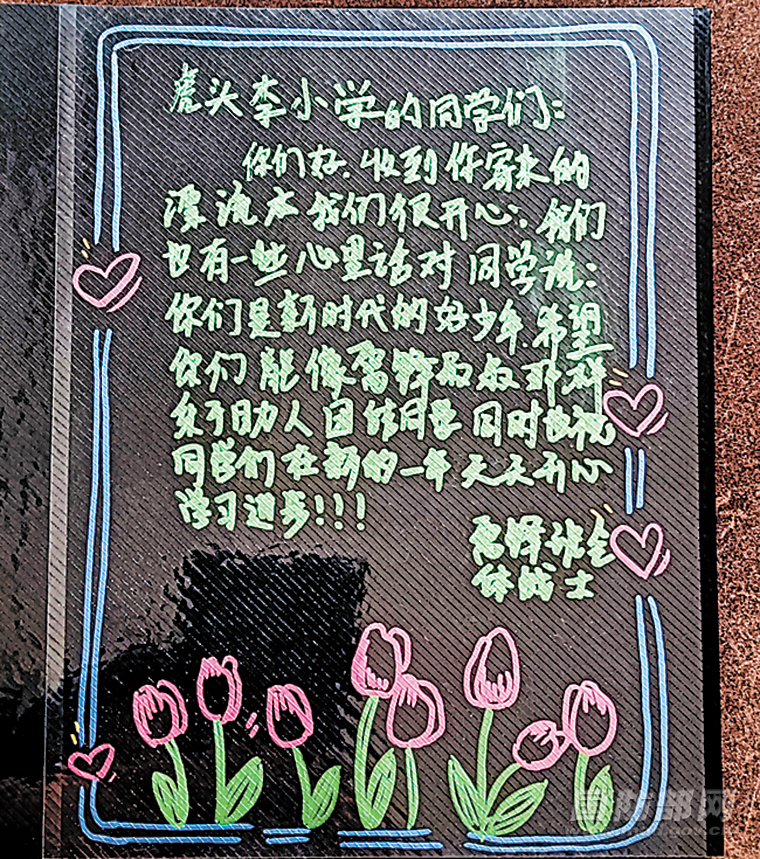 虎头李小学的同学们：
你们好，收到你寄来的
漂流本我们很开心，我们
也有一些心里话对同学说：
你们是新时代的好少年，希望
你们能像雷锋叔叔那样
好于助人团结同学 同时也祝
同学们在新的一年天天开心
学习进步！！！
雷锋班全
体战士
国防部网